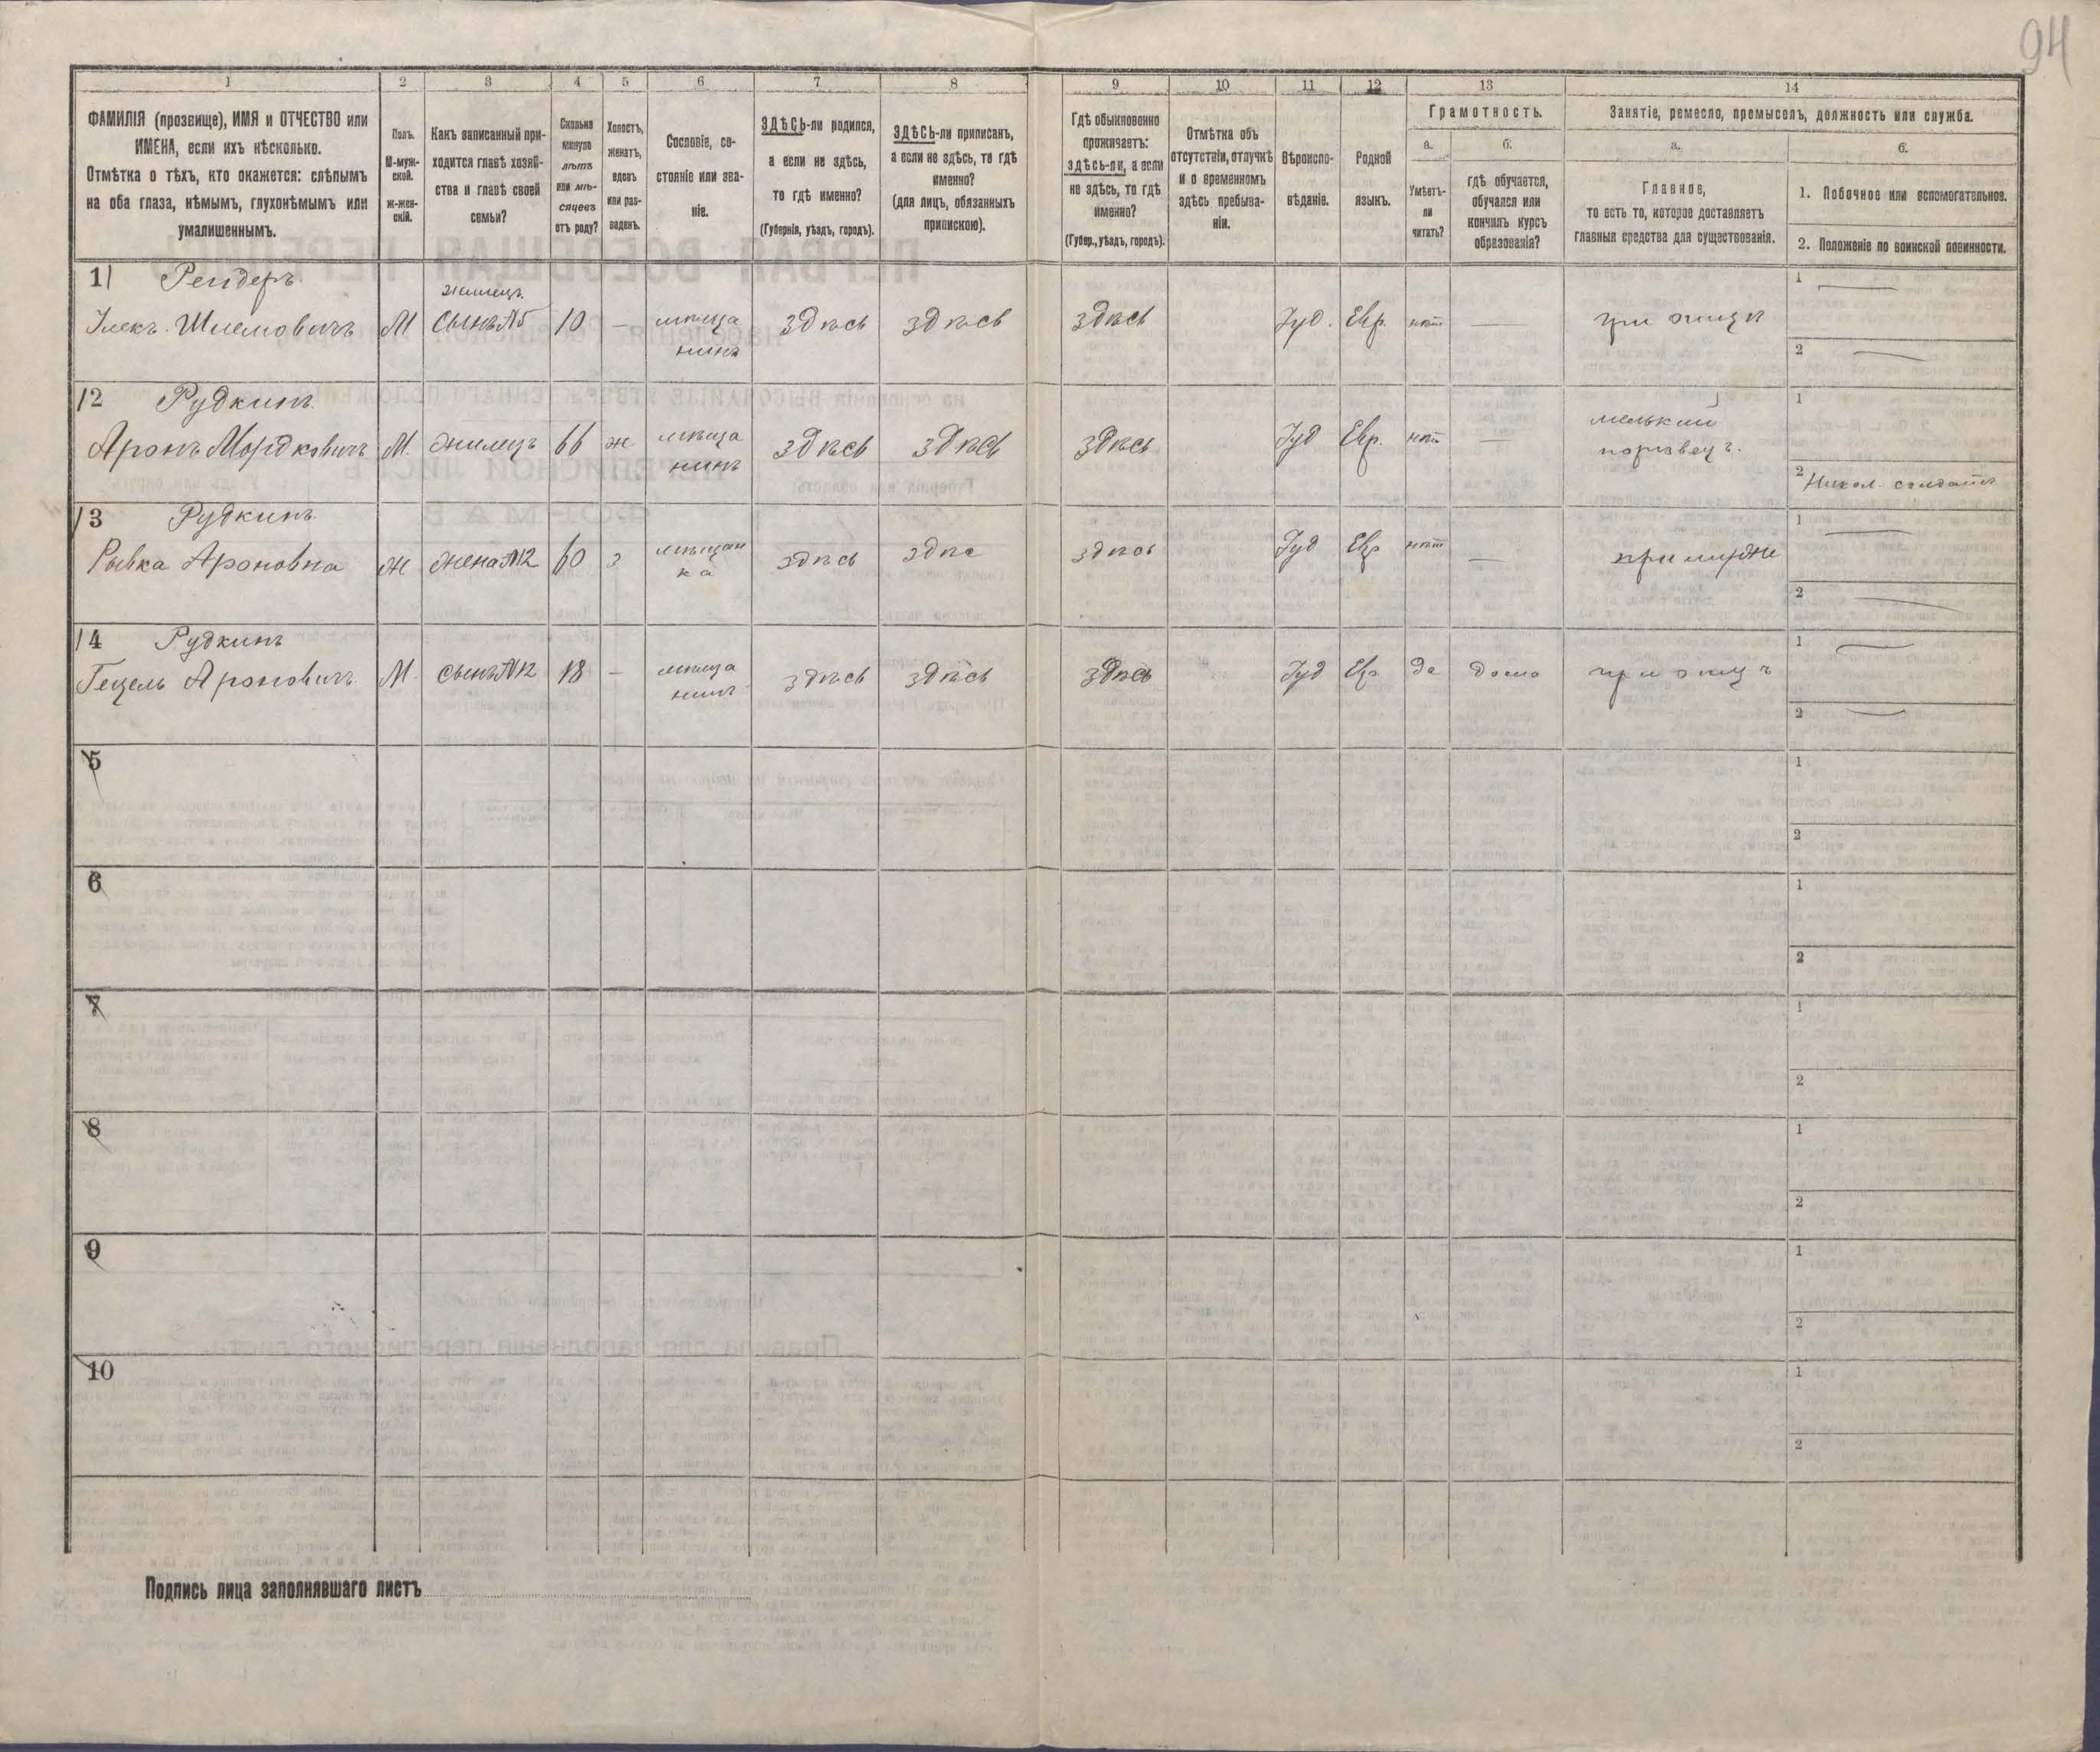 94
1 2 3 4 5 6 7 8 9 10 11 12 13 14
ФАМИЛІЯ (прозвище), ИМЯ и ОТЧЕСТВО или
ИМЕНА, если ихъ нѣсколько.
Отмѣтка о тѣхъ, кто окажется: слѣпымъ
на оба глаза, нѣмымъ, глухонѣмымъ или
умалишеннымъ.
Полъ.
М-муж-
ской.
Ж-жен-
скій.
Какъ записанный при-
ходится главѣ хозяй-
ства и главѣ своей
семьи?
Сколько
минуло
лѣтъ
или мѣ-
сяцевъ
отъ роду?
Холостъ,
женатъ,
вдовъ
или раз-
веденъ.
Сословіе, со-
стояніе или зва-
ніе.
ЗДѢСЬ-ли родился,
а если не здѣсь,
то гдѣ именно?
(Губернія, уѣздъ, городъ).
ЗДѢСЬ-ли приписанъ,
а если не здѣсь, то гдѣ
именно?
(для лицъ, обязанныхъ
припискою).
Гдѣ обыкновенно
проживаетъ:
здѣсь-ли, а если
не здѣсь, то гдѣ
именно?
(Губер., уѣздъ, городъ).
Отмѣтка объ
отсутствіи, отлучкѣ
и о временномъ
здѣсь пребыва-
ніи.
Вѣроиспо-
вѣданіе.
Родной
языкъ.
Грамотность.
а.
Умѣетъ-
ли
читать?
б.
гдѣ обучается,
обучался или
кончилъ курсъ
образованія?
Занятіе, ремесло, промыселъ, должность или служба.
а.
Главное,
то есть то, которое доставляетъ
главныя средства для существованія.
б.
1. Побочное или вспомогательное.
2. Положеніе по воинской повинности.
11 Рендеръ
жилецъ
Шлемовичъ М сынъ №5 10 — мѣща здѣсь здѣсь здѣсь Іуд. Евр. нѣтъ — при отцѣ
нинъ
1 —
2 —
12 Рудкинъ
Аронъ Мордковичъ М. жилецъ 66 ж мѣща здѣсь здѣсь здѣсь Іуд Евр. нѣтъ — мелькій
нинъ торгвецъ.
1
2 Никол. солдатъ
13 Рудкинъ
Рывка Ароновна ж жена №12 60 з мѣщан здѣсь здѣс здѣсь Іуд Евр нѣтъ — при мужѣ
ка
1 —
2 —
14 Рудкинъ
Гецель Ароновичъ М. сынъ №12 18 — мѣща здѣсь здѣсь здѣсь Іуд Евр да дома при отцѣ
нинъ
1 —
2 —
5
1
2
6
1
2
7
1
2
8
1
2
9
1
2
10
1
2
Подпись лица заполнявшаго листъ